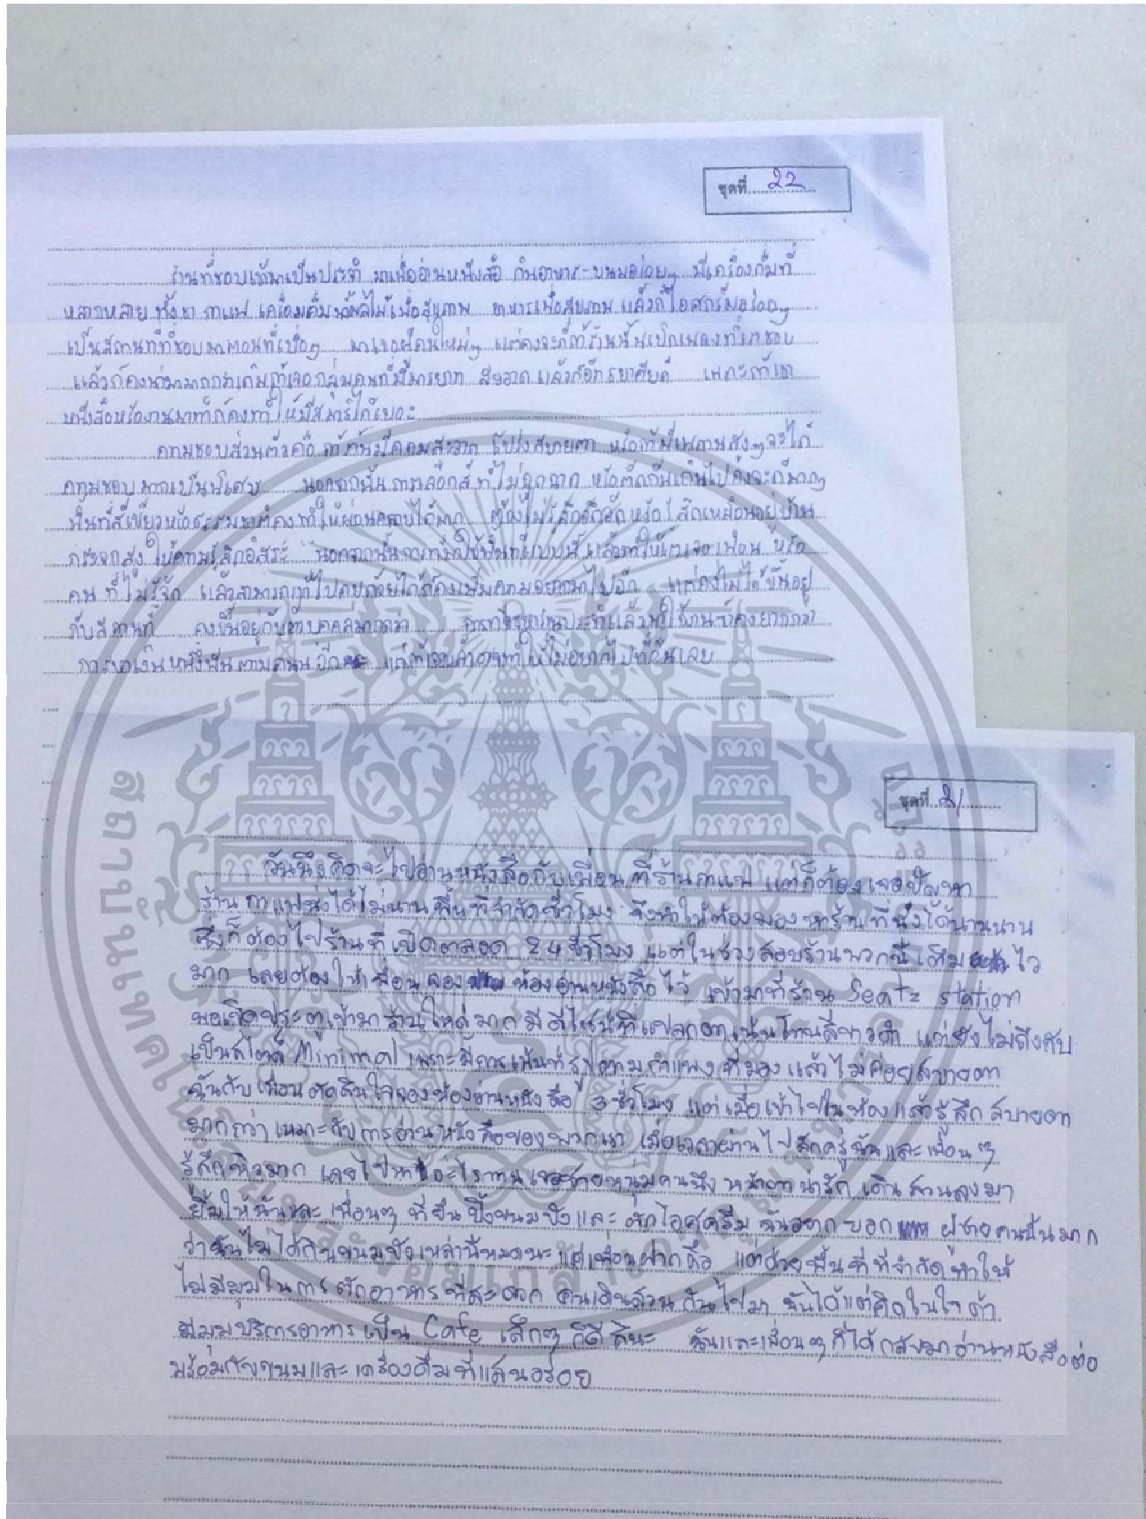 ชุดที่ 22
ร้านที่ชอบเข้ามาเป็นประจำ มาเพื่ออ่านหนังสือ กินอาหาร-ขนมอร่อยๆ มีเครื่องดื่มที่
หลากหลาย ทั้งชา กาแฟ เครื่องดื่มน้ำผลไม้เพื่อสุขภาพ อาหารเพื่อสุขภาพ แล้วก็ไอศกรีมอร่อยๆ
เป็นสถานที่ที่ชอบมาตอนที่เบื่อๆ มาเจอผู้คนใหม่ๆ แต่คงจะดีถ้าร้านนั้นเปิดเพลงที่เราชอบ
แล้วก็คงน่ามามากกว่าเดิมถ้าเจอกลุ่มคนที่มีมารยาท แล้วก็อัธยาศัยดี เพราะถ้าเอา
หนังสือหรืองานมาทำก็คงทำให้มีสมาธิได้เยอะ
ความชอบส่วนตัวคือ ถ้าร้านมีความสะอาด โปร่งสบายตา หรือถ้ามีเพดานสูงๆจะได้
ความชอบมากเป็นพิเศษ นอกจากนั้นการเลือกสีที่ไม่ฉูดฉาด หรือตัดกันเกินไปคงจะดีมากๆ
พื้นที่สีเขียวหรือธรรมชาติคงทำให้ผ่อนคลายได้มาก ต้องไม่รู้สึกอึดอัด หรือรู้สึกเหมือนอยู่บ้าน
กระจกสูง ให้ความรู้สึกอิสระ นอกจากนั้นการมาใช้พื้นที่แบบนี้ แล้วทำให้เราเจอเพื่อน หรือ
คนที่ไม่รู้จัก แล้วสามารถเข้าไปคุยด้วยได้ก็คงเพิ่มความอยากมาไปอีก แต่คงไม่ได้ขึ้นอยู่
กับสถานที่ คงขึ้นอยู่กับตัวบุคคลมากกว่า
ชุดที่ 21
วันนึงคิดจะไปอ่านหนังสือกับเพื่อนที่ร้านกาแฟ แต่ก็ต้องเจอปัญหา
ร้านกาแฟนั่งได้ไม่นานพื้นที่จำกัดชั่วโมง จึงทำให้ต้องมองหาร้านที่นั่งได้นานนาน
ซึ่งก็ต้องไปร้านที่เปิดตลอด 24 ชั่วโมง แต่ในช่วงสอบร้านพวกนี้เต็มไว
มาก เลยต้องให้เพื่อนจองห้องอ่านหนังสือไว้ เข้ามาที่ร้าน Seatz station
พอเปิดประตูเข้ามาร้านใหญ่มาก มีดีไซน์ที่แปลกตาเน้นโทนสีขาวดำ แต่ยังไม่ถึงกับ
เป็นสไตล์ Minimal เพราะมีการเพ้นท์รูปตามกำแพงที่มองแล้วไม่ค่อยสบายตา
ฉันกับเพื่อนตัดสินใจจองห้องอ่านหนังสือ 3 ชั่วโมง แต่เมื่อเข้าไปในห้องแล้วรู้สึกสบายตา
มากกว่าเหมาะกับการอ่านหนังสือของพวกเรา เมื่อเวลาผ่านไปสักครู่ฉันและเพื่อนๆ
รู้สึกหิวมาก เลยไปหาอะไรทานเจอชายหนุ่มคนนึง หน้าตาน่ารัก เดินสวนลงมา
ยิ้มให้ฉันและเพื่อนๆ ที่ยืนปิ้งขนมปังและตักไอศครีม ฉันอยากบอกผู้ชายคนนั้นมาก
ว่าฉันไม่ได้กินขนมปังเหล่านี้หมดนะ แต่เพื่อนฝากถือ แต่ด้วยพื้นที่ที่จำกัดทำให้
ไม่มีมุมในการตักอาหารที่สะดวก คนเดินสวนกันไปมา ฉันได้แต่คิดในใจถ้า
มีมุมบริการอาหารเป็น Cafe เล็กๆ ก็ดีสินะ ฉันและเพื่อนๆ ก็ได้กลับมาอ่านหนังสือต่อ
พร้อมกับขนมและเครื่องดื่มที่แสนอร่อย